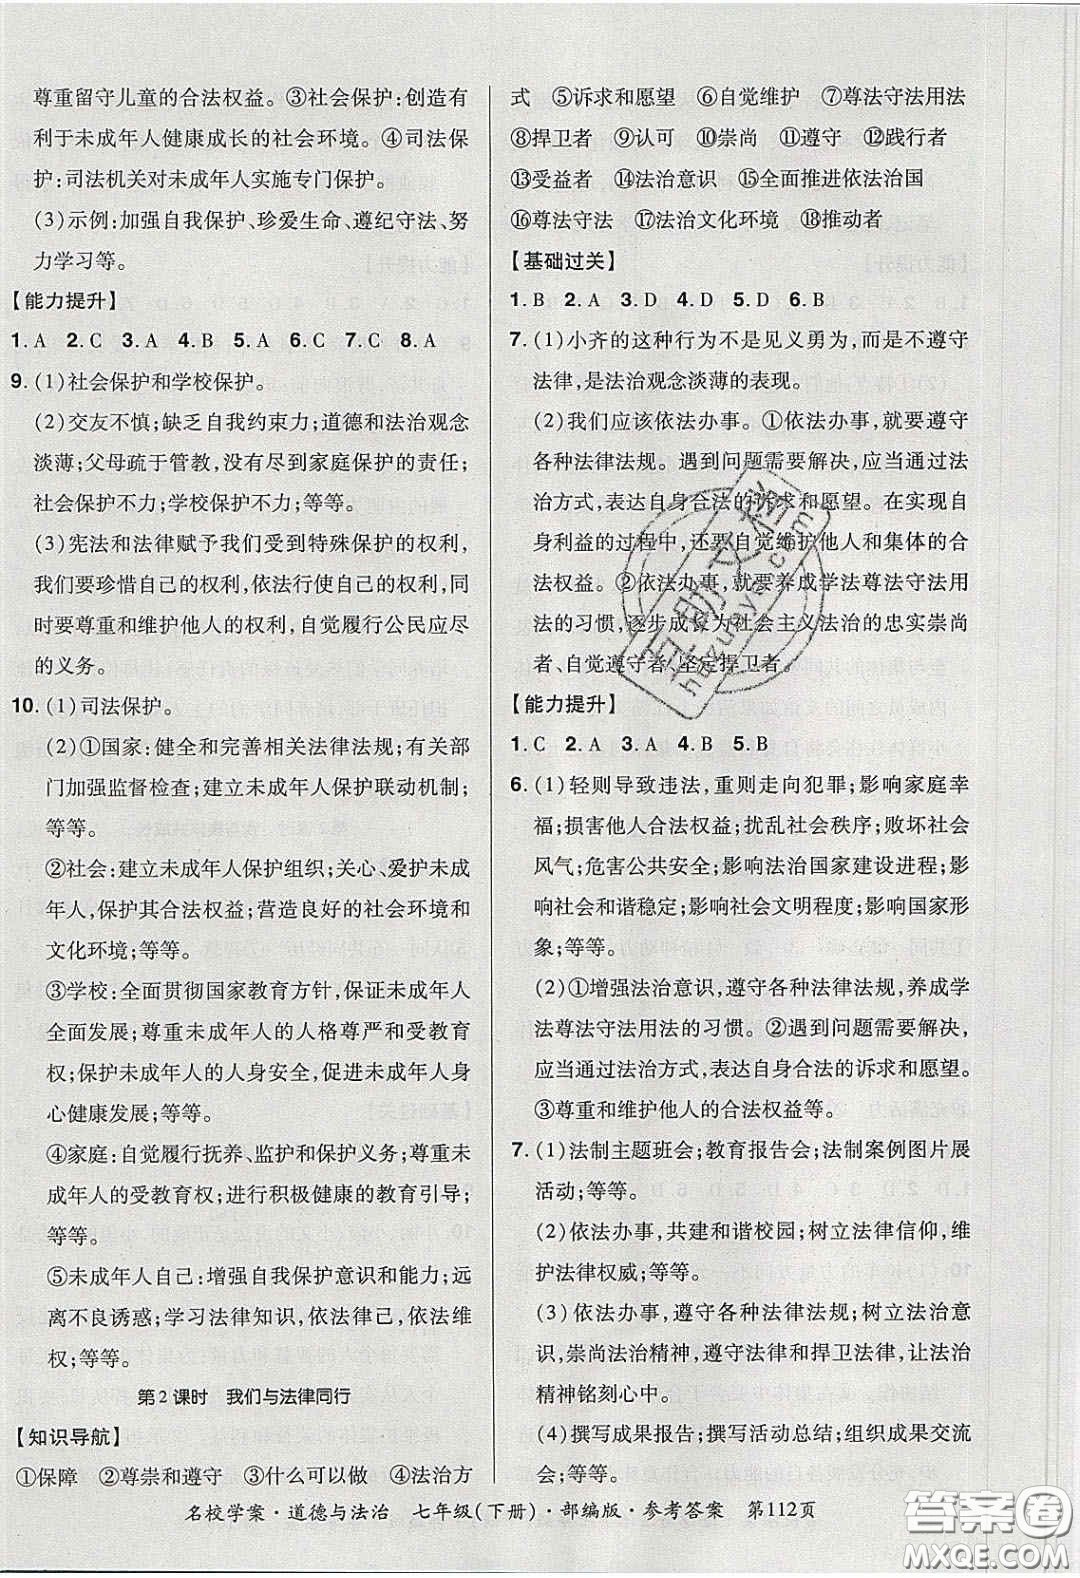 尊重留守儿童的合法权益。③社会保护:创造有
利于未成年人健康成长的社会环境。④司法保
护:司法机关对未成年人实施专门保护。
(3)示例:加强自我保护、珍爱生命、遵纪守法、努
力学习等。
【能力提升】
1. A 2. C 3. A 4. C 5. A 6. C 7. C 8. A
9. (1)社会保护和学校保护。
(2)交友不慎;缺乏自我约束力;道德和法治观念
淡薄;父母疏于管教,没有尽到家庭保护的责任;
社会保护不力;学校保护不力;等等。
(3)宪法和法律赋予我们受到特殊保护的权利,
我们要珍惜自己的权利,依法行使自己的权利,同
时要尊重和维护他人的权利,自觉履行公民应尽
的义务。
10. (1)司法保护。
(2)①国家:健全和完善相关法律法规;有关部
门加强监督检查;建立未成年人保护联动机制;
等等。
②社会:建立未成年人保护组织;关心、爱护未成
年人,保护其合法权益;营造良好的社会环境和
文化环境;等等。
③学校:全面贯彻国家教育方针,保证未成年人
全面发展;尊重未成年人的人格尊严和受教育
权;保护未成年人的人身安全,促进未成年人身
心健康发展;等等。
④家庭:自觉履行抚养、监护和保护义务;尊重未
成年人的受教育权;进行积极健康的教育引导;
等等。
⑤未成年人自己:增强自我保护意识和能力;远
离不良诱惑;学习法律知识,依法律己,依法维
权;等等。
第2课时 我们与法律同行
【知识导航】
①保障 ②尊崇和遵守 ③什么可以做 ④法治方
式 ⑤诉求和愿望 ⑥自觉维护 ⑦尊法守法用法
⑧捍卫者 ⑨认可 ⑩崇尚 ⑪遵守 ⑫践行者
⑬受益者 ⑭法治意识 ⑮全面推进依法治国
⑯尊法守法 ⑰法治文化环境 ⑱推动者
【基础过关】
1. B 2. A 3. D 4. D 5. D 6. B
7. (1)小齐的这种行为不是见义勇为,而是不遵守
法律,是法治观念淡薄的表现。
(2)我们应该依法办事。①依法办事,就要遵守
各种法律法规。遇到问题需要解决,应当通过法
治方式,表达自身合法的诉求和愿望。在实现自
身利益的过程中,还要自觉维护他人和集体的合
法权益。②依法办事,就要养成学法尊法守法用
法的习惯,逐步成长为社会主义法治的忠实崇尚
者、自觉遵守者、坚定捍卫者。
【能力提升】
1. C 2. A 3. A 4. B 5. B
6. (1)轻则导致违法,重则走向犯罪;影响家庭幸
福;损害他人合法权益;扰乱社会秩序;败坏社会
风气;危害公共安全;影响法治国家建设进程;影
响社会和谐稳定;影响社会文明程度;影响国家形
象;等等。
(2)①增强法治意识,遵守各种法律法规,养成学
法尊法守法用法的习惯。②遇到问题需要解决,
应当通过法治方式,表达自身合法的诉求和愿望。
③尊重和维护他人的合法权益等。
7. (1)法制主题班会;教育报告会;法制案例图片展
活动;等等。
(2)依法办事,共建和谐校园;树立法律信仰,维
护法律权威;等等。
(3)依法办事,遵守各种法律法规;树立法治意
识,崇尚法治精神,遵守法律和捍卫法律,让法治
精神铭刻心中。
(4)撰写成果报告;撰写活动总结;组织成果交流
会;等等。
名校学案·道德与法治 七年级(下册)·部编版·参考答案 第112页
答案圈
MXQE.COM